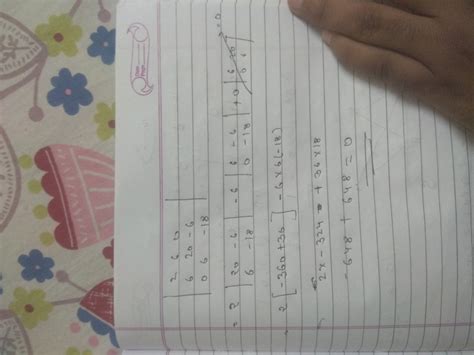 2 6 0
6 20 -6
0 6 -18
= 2 | 20 -6 | -6 | 6 -6 | + 0 | 6 20 | = 0
6 -18 0 -18 0 6
2 [-360+36] - 6×6(-18)
2× -324 + 36×18
-648 + 648 = 0